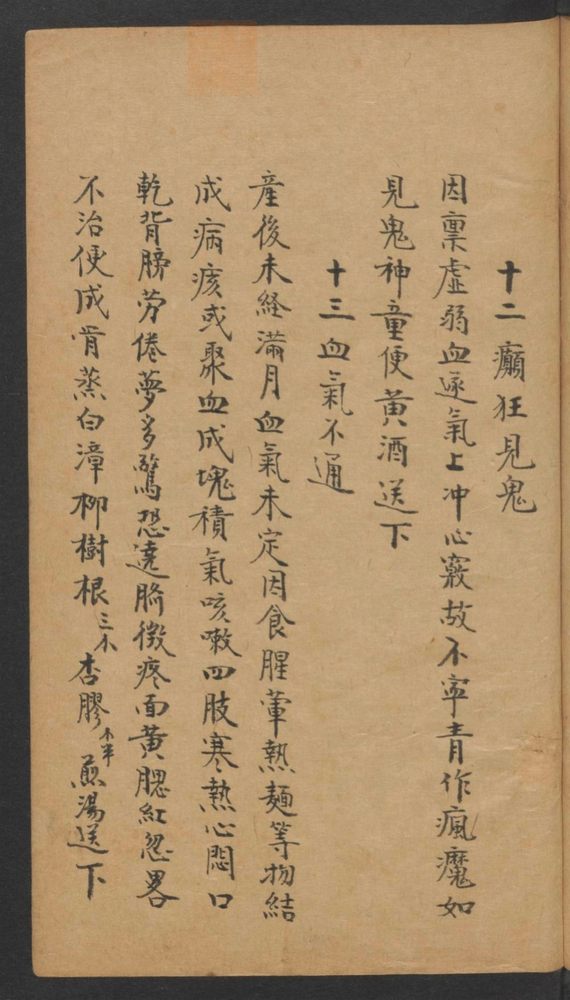 十二癲狂見鬼
因禀虛弱血逐氣上冲心竅故不寧青作瘋魔如
見鬼神童便黃酒送下
十三血氣不通
產後未経滿月血氣未定因食腥葷熱麺等物結
成病痎或聚血成塊積氣咳嗽四肢寒熱心悶口
乾背膀劳倦夢多驚恐遶臍微疼面黃腮紅忽畧
不治便成骨蒸白漳柳樹根三小杏膠小半煎湯送下